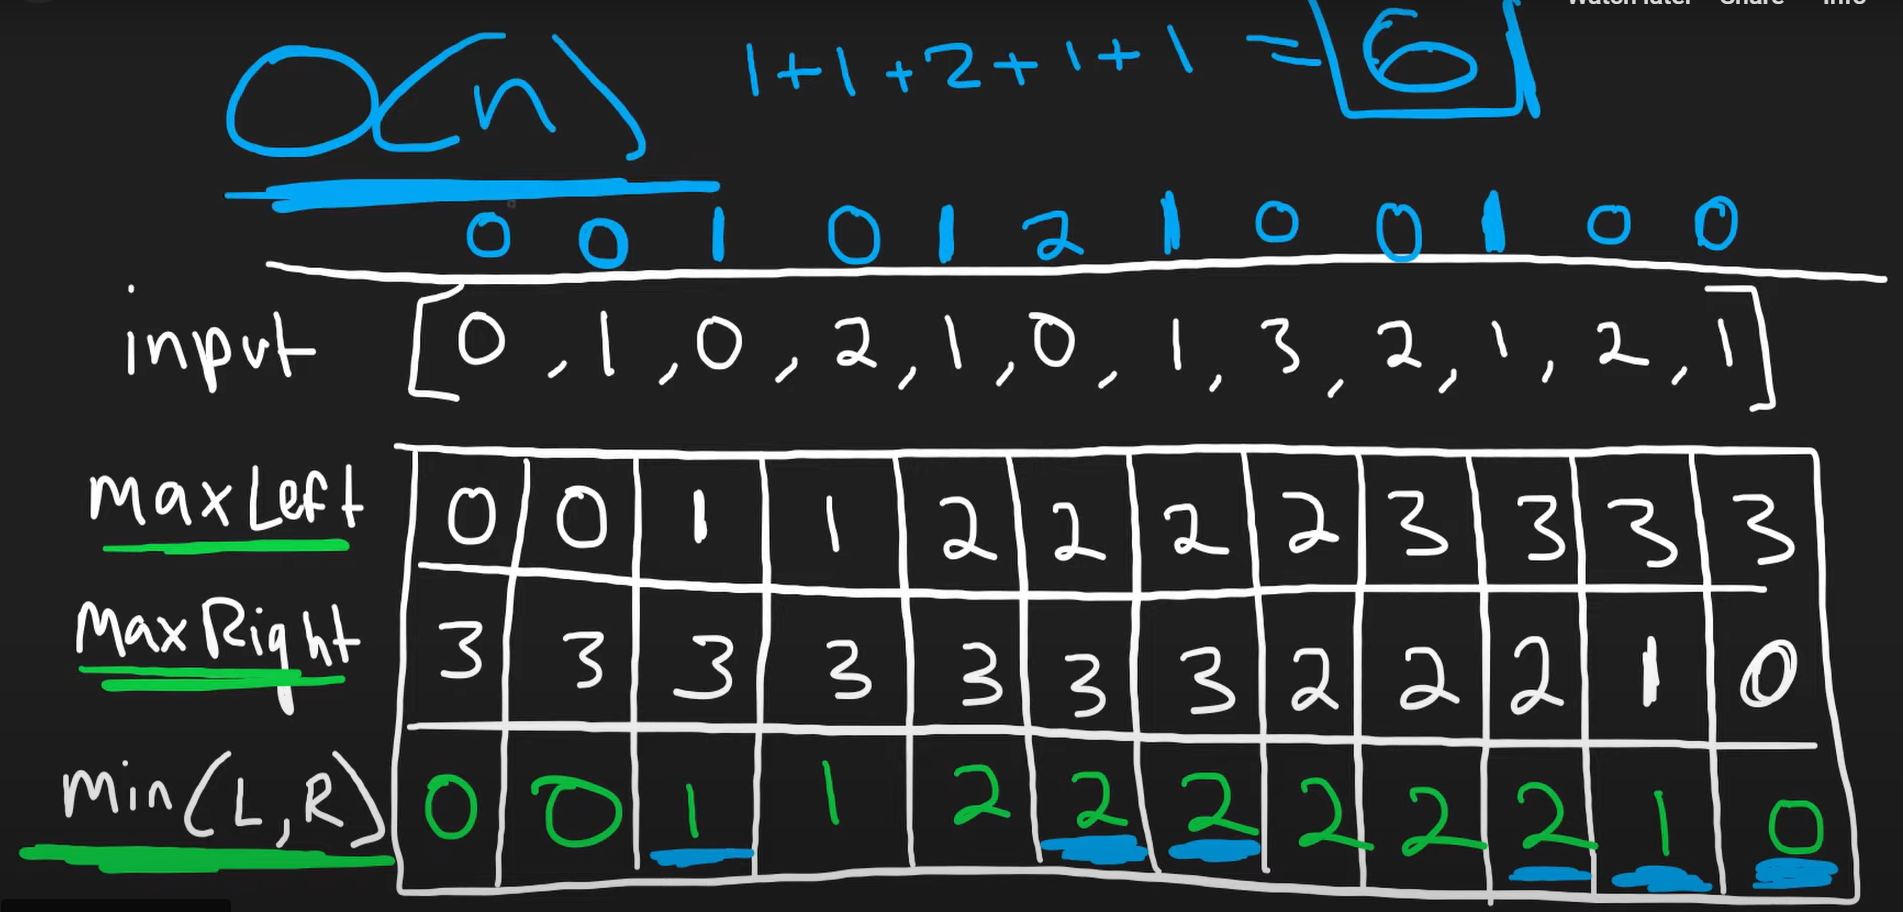 Watch later Share Info
O(n) 1+1+2+1+1 = 6
0 0 1 0 1 2 1 0 0 1 0 0
input [0,1,0,2,1,0,1,3,2,1,2,1]
maxLeft 0 0 1 1 2 2 2 2 3 3 3 3
maxRight 3 3 3 3 3 3 3 2 2 2 1 0
min(L,R) 0 0 1 1 2 2 2 2 2 2 1 0